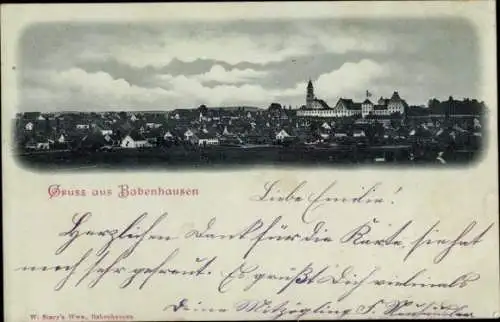 Gruss aus Babenhausen
Liebe Emilie!
Herzlichen Dank für die Karte, sie hat
mich sehr gefreut. Es grüßt Dich vielmals
Deine Mitzögling
W. Stury's Wwe., Babenhausen